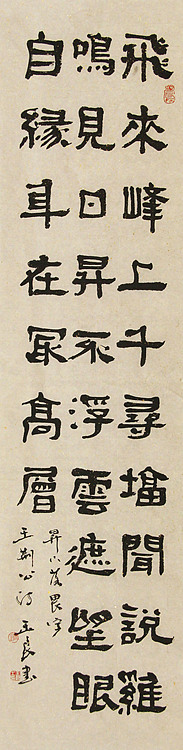 飛來峰上千尋墖聞說雞
鳴見日昇不浮雲遮望眼
自緣身在冣高層
畏字
王荊公詩 良書